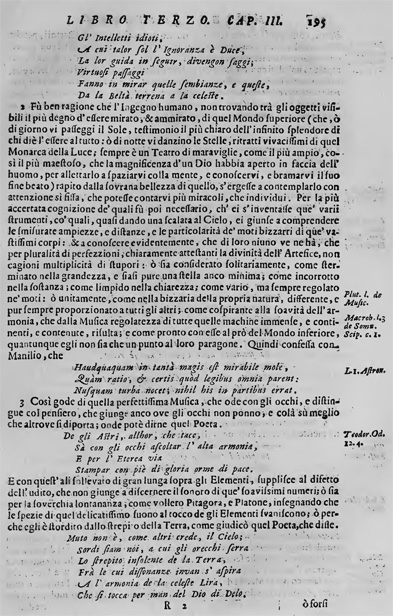 LIBRO TERZO. CAP. III. 195
Gl' Intelletti idioti,
A cui talor sol l' Ignoranza è Duce,
La lor guida in seguir, divengon saggi;
Virtuosi passaggi
Fanno in mirar quelle sembianze, e queste,
Da la Beltà terrena a la celeste.
2 Fù ben ragione che l'Ingegno humano, non trovando trà gli oggetti visi-
bili il più degno d'essere mirato, & ammirato, di quel Mondo superiore (che, ò
di giorno vi passeggi il Sole, testimonio il più chiaro dell'infinito splendore di
chi diè l'essere al tutto: ò di notte vi danzino le Stelle, ritratti vivacissimi di quel
Monarca della Luce; sempre è un Teatro di maraviglie, come il più ampio, co-
sì il più maestoso, che la magnificenza d'un Dio habbia aperto in faccia dell'
huomo, per allettarlo a spaziarvi colla mente, e conoscervi, e bramarvi il suo
fine beato) rapito dalla sovrana bellezza di quello, s'ergesse a contemplarlo con
attenzione sì fissa, che potesse contarvi più miracoli, che individui. Per la più
accertata cognizione de' quali fù poi necessario, ch' ei s'inventasse que' varii
strumenti, co' quali, quasi dando una scalata al Cielo, ei giunse a comprendere
le smisurate ampiezze, e distanze, e le particolarità de' moti bizzarri di que' va-
stissimi corpi: & a conoscere evidentemente, che di loro niuno ve ne hà, che
per pluralità di perfezzioni, chiaramente attestanti la divinità dell' Artefice, non
cagioni multiplicità di stupori: ò sia considerato solitariamente, come ster-
minato nella grandezza, e siasi pure una stella anco minima; come incorrotto
nella sostanza; come limpido nella chiarezza; come vario, ma sempre regolato
ne' moti: ò unitamente, come nella bizzaria della propria natura, differente, e
pur sempre proporzionato a tutti gli altri; come cospirante alla soavità dell'ar-
monia, che dalla Musica regolatezza di tutte quelle machine immense, e conti-
nenti, e contenute, risulta; e come pronto con esse al prò del Mondo inferiore,
quantunque egli non sia che un punto al loro paragone. Quindi confessa con
Manilio, che
Plut. l. de
Music.
Macrob. l. 3
de Somn.
Scip. c. 1.
Haudquaquam in tantà magis est mirabile mole,
Quàm ratio, & certis quod legibus omnia parent:
Nusquam turba nocet; nihil his in partibus errat.
L. 1. Astron.
3 Così gode di quella perfettissima Musica, che ode con gli occhi, e distin-
gue col pensiero, che giunge anco ove gli occhi non ponno, e colà sù meglio
che altrove si diporta; onde potè dirne quel Poeta.
De gli Astri, allhor, che tace,
Sà con gli occhi ascoltar l' alta armonia,
E per l' Eterea via
Stampar con piè di gloria orme di pace.
Teodor. Od.
12. 4.
E con quest' ali sollevato di gran lunga sopra gli Elementi, supplisce al difetto
dell'udito, che non giunge a discernere il sonoro di que' soavissimi numeri: ò sia
per la soverchia lontananza, come vollero Pitagora, e Platone, insegnando che
le spezie di quel delicatissimo suono al tocco de gli Elementi svaniscono; ò per-
che egli è stordito dallo strepito della Terra, come giudicò quel Poeta, che disse.
Muto non è, come altri crede, il Cielo;
Sordi siam noi, a cui gli orecchi serra
Lo strepito insolente de la Terra,
Frà le cui dissonanze invan s' aspira
A l' armonia de la celeste Lira,
Che si tocca per man del Dio di Delo.
R 2 ò forsi